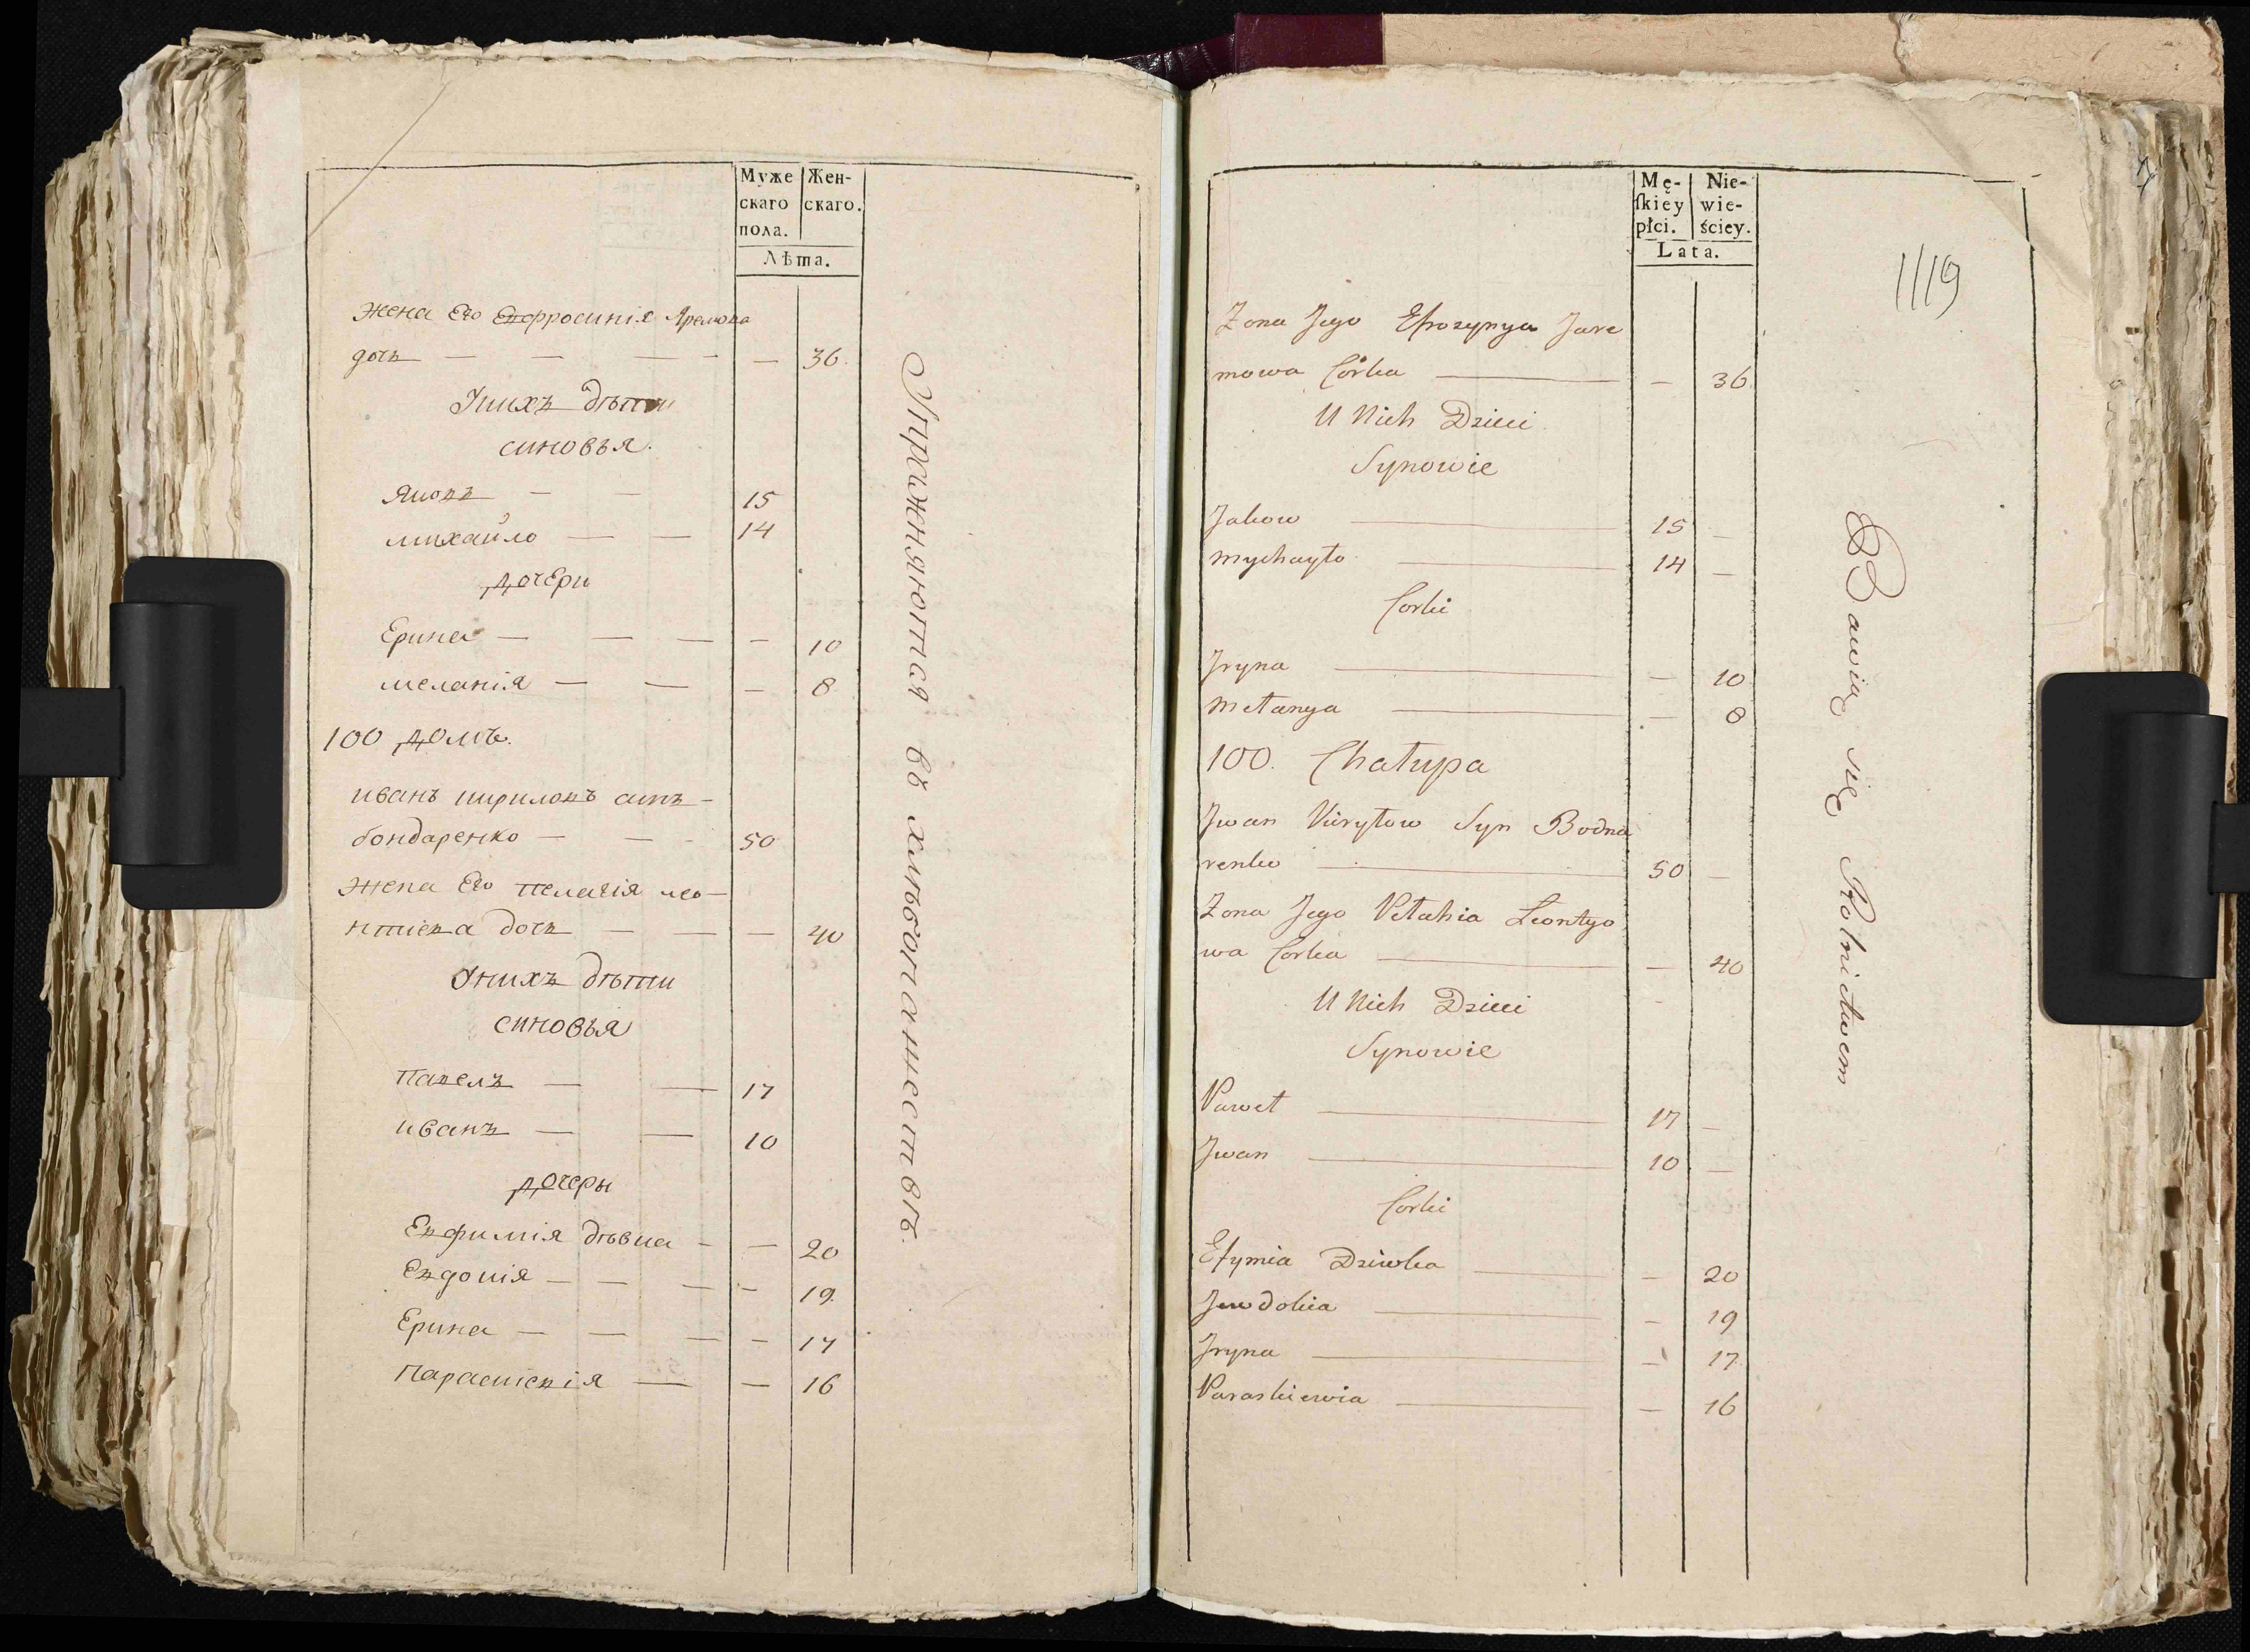 Муже
скаго
пола.
Жен-
скаго.
Лѣта.
жена Его Евфросинія Яремова
дочь — — — — 36
У нихъ дѣти
синовья.
Яковъ — — 15
михайло — — 14
дочери
Ерина — — — — 10
меланія — — — 8
100 домъ.
иванъ кириловъ синъ –
бондаренко — — - 50
жена Его пелагія лео–
нтіева дочь — — — 40
У нихъ дѣти
синовья
павелъ — — 17
иванъ — — 10
дочеры
Евфимія дѣвка - — 20
Евдокія — — — - 19
Ерина — — — - 17
параскевія — — 16
Упражняются въ хлѣбопашествѣ.
Mę-
ſkiey
płci.
Nie-
wie-
ściey.
Lata.
1119
Zona Jego Efrozynya Jare
mowa Córka — — 36
U Nich Dzieci
Synowie
Jakow — 15 —
Mychayło — 14 —
Corki
Jryna — — 10
Mełanya — — 8
100. Chałupa
Jwan Kiryłow Syn Bodna
renko — 50 —
Zona Jego Pełahia Leontyo
wa Corka — — 40
U Nich Dzieci
Synowie
Paweł — 17 —
Jwan — 10 —
Corki
Efymia Dziwka — — 20
Jewdokia — — 19
Jryna — — 17
Paraskiewia — — 16
Bawią się Rolnictwem